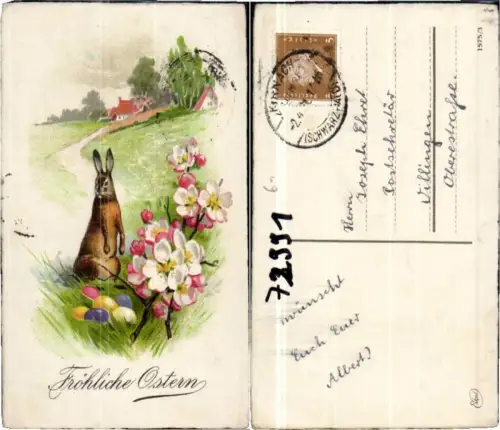 Fröhliche Ostern
1575/3
5
(SCHWARZWALD)
72991
Herrn
Joseph Ehret
Postsekretär
Villingen
Oberestraße.
wünscht
Euch Euer
Albert)